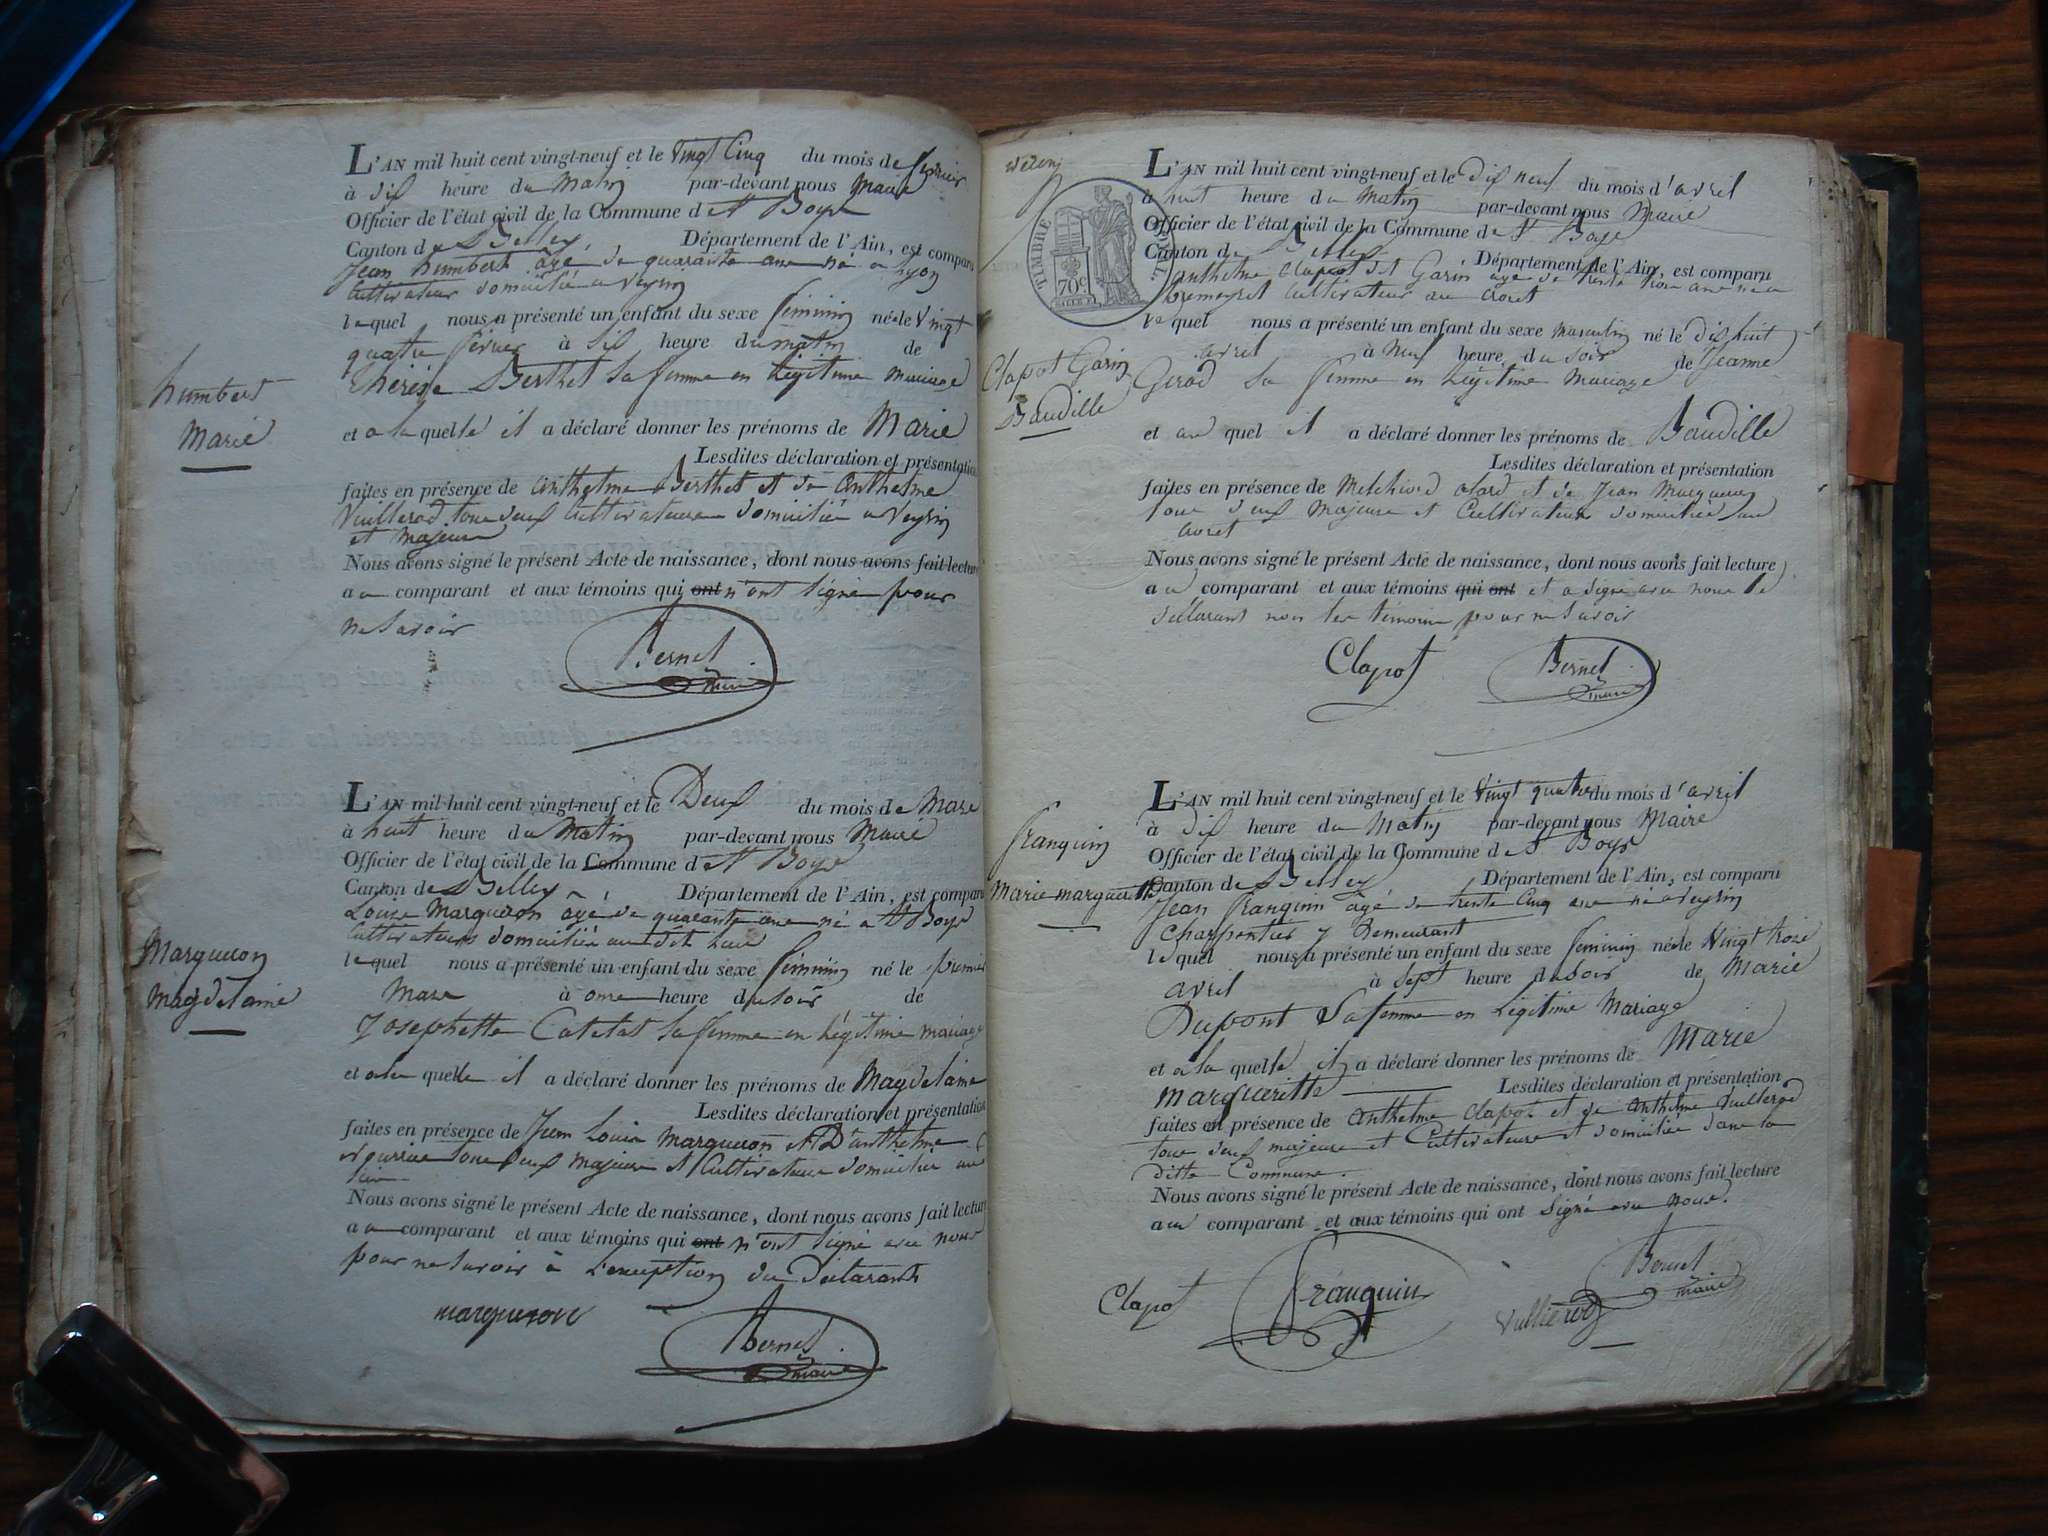 L'AN mil huit cent vingt-neuf et le vingt Cinq du mois de fevrier
à dix heure du Matin par-devant nous Maire
Officier de l'état civil de la Commune de St Boys
Canton de Belley, Département de l'Ain, est comparu
Jean humbert âgé de quarante ans né a lyon
Cultivateur domicilié a Veyrin
lequel nous a présenté un enfant du sexe féminin né le vingt
quatre février à six heure du matin de
thérèse Berthet sa femme en légitime mariage
humbert
Marie
et a la quelle il a déclaré donner les prénoms de Marie
Lesdites déclaration et présentation
faites en présence de anthelme Berthet et de anthelme
Vuillerod tous deux Cultivateurs domicilié a Veyrin
et majeurs
Nous avons signé le présent Acte de naissance, dont nous avons fait lecture
au comparant et aux témoins qui ont n'ont signé pour
ne savoir
Bernet
maire
L'AN mil huit cent vingt-neuf et le Deux du mois de Mars
à huit heure du Matin par-devant nous Maire
Officier de l'état civil de la Commune de St Boys
Canton de Belley, Département de l'Ain, est comparu
Louis Margueron âgé de quarante ans né a St Boys
Cultivateurs domicilié au dit lieu
lequel nous a présenté un enfant du sexe féminin né le premier
Mars à onze heure du soir de
Josephette Catelat sa femme en légitime mariage
Margueron
Magdelaine
et a la quelle il a déclaré donner les prénoms de Magdelaine
Lesdites déclaration et présentation
faites en présence de Jean Louis Margueron et D'anthelme
tous deux majeurs et Cultivateurs domicilié au
lieu
Nous avons signé le présent Acte de naissance, dont nous avons fait lecture
au comparant et aux témoins qui ont n'ont signé avec nous
pour ne savoir à L'exception du Déclarant
margueron
Bernet
maire
TIMBRE
70c
L'AN mil huit cent vingt-neuf et le dix neuf du mois d'avril
à huit heure du Matin par-devant nous Maire
Officier de l'état civil de la Commune de St Boys
Canton de Belley Département de l'Ain, est comparu
anthelme Clapot dit Garin âgé de trente trois ans né a
premeyzel Cultivateur au
lequel nous a présenté un enfant du sexe masculin né le dix huit
avril à neuf heure du soir de Jeanne
Gerod sa femme en légitime Mariage
Clapot Garin
Baudille
et au quel il a déclaré donner les prénoms de Baudille
Lesdites déclaration et présentation
faites en présence de Melchiord et de Jean Margueron
tous deux Majeurs et Cultivateurs domicilié au
Nous avons signé le présent Acte de naissance, dont nous avons fait lecture
au comparant et aux témoins qui ont et a signé avec nous le
déclarant non les témoins pour ne savoir
Clapot Bernet
maire
L'AN mil huit cent vingt-neuf et le Vingt quatre du mois d'avril
à dix heure du Matin par-devant nous Maire
Officier de l'état civil de la Commune de St Boys
Canton de Belley Département de l'Ain, est comparu
Jean franquin âgé de trente Cinq ans né a Veyrin
Charpentier y Demeurant
lequel nous a présenté un enfant du sexe féminin né le Vingt trois
avril à sept heure du soir de Marie
Dupont Sa femme en Légitime Mariage
franquin
Marie margueritte
et a la quelle il a déclaré donner les prénoms de Marie
margueritte Lesdites déclaration et présentation
faites en présence de anthelme Clapot et de anthelme Vuillerod
tous deux majeurs et Cultivateurs et domicilié dans la
ditte Commune.
Nous avons signé le présent Acte de naissance, dont nous avons fait lecture
au comparant et aux témoins qui ont signé avec nous.
Clapot franquin Vullierod Bernet
maire